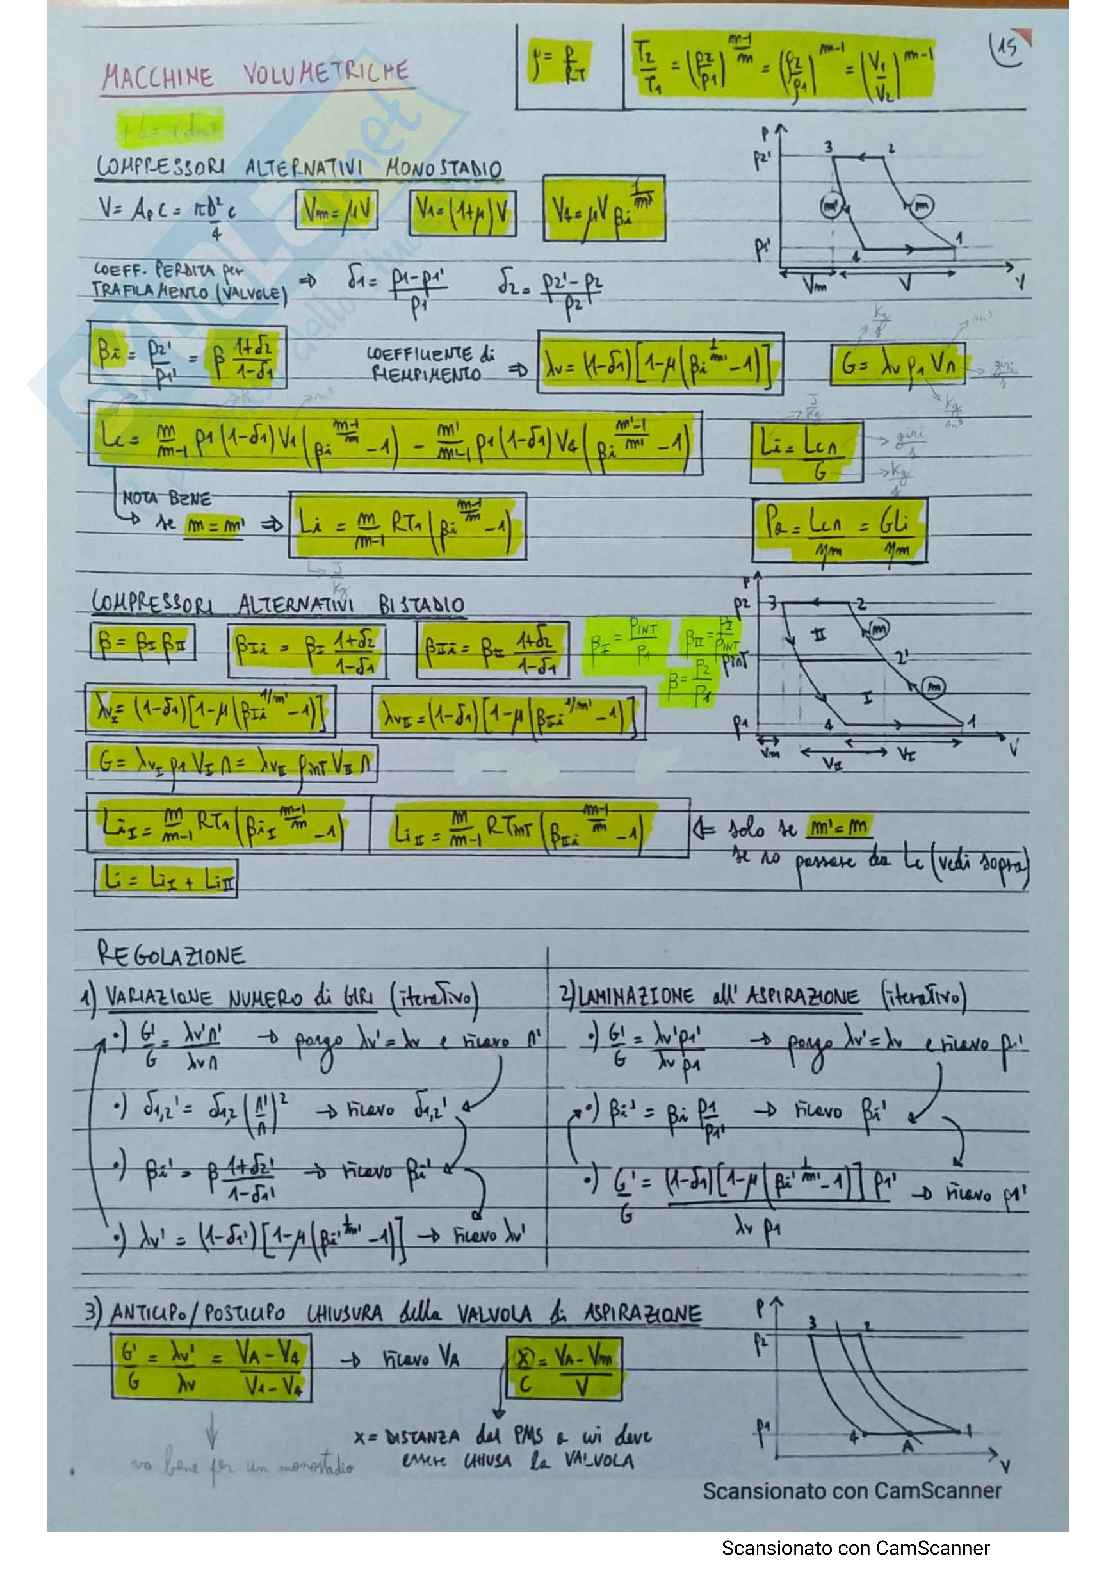 15
MACCHINE VOLUMETRICHE
ρ = p/RT
T2/T1 = (p2/p1)^((m-1)/m) = (ρ2/ρ1)^(m-1) = (V1/V2)^(m-1)
COMPRESSORI ALTERNATIVI MONOSTADIO
V = Ap c = πD²/4 c
Vm = μV
V1 = (1+μ)V
V4 = μV βi^(1/m')
P p2' p1' 3 2 m' m 4 1 Vm V V
COEFF. PERDITA per TRAFILAMENTO (VALVOLE) ⇒ δ1 = (p1-p1')/p1 δ2 = (p2'-p2)/p2
βi = p2'/p1' = β (1+δ2)/(1-δ1)
COEFFICIENTE di RIEMPIMENTO ⇒ λv = (1-δ1)[1-μ(βi^(1/m') -1)]
G = λv ρ1 V n
kg/s giri/s kg/m³
Lc = m/(m-1) p1 (1-δ1) V1 (βi^((m-1)/m) -1) - m'/(m'-1) p1 (1-δ1) V4 (βi^((m'-1)/m') -1)
Li = Lc n/G
J/kg giri/s kg/s
NOTA BENE
se m = m' ⇒ Li = m/(m-1) RT1 (βi^((m-1)/m) -1)
J/kg
Pa = Lc n/ηm = G Li/ηm
COMPRESSORI ALTERNATIVI BISTADIO
β = βI βII
βIi = βI (1+δ2)/(1-δ1)
βIIi = βII (1+δ2)/(1-δ1)
βI = pINT/p1 βII = p2/pINT
β = p2/p1
P p2 pINT p1 3 2 II m 2' I m 4 1 Vm VII VI V
λvI = (1-δ1)[1-μ(βIi^(1/m') -1)]
λvII = (1-δ1)[1-μ(βIIi^(1/m') -1)]
G = λvI ρ1 VI n = λvII ρINT VII n
LiI = m/(m-1) RT1 (βiI^((m-1)/m) -1)
LiII = m/(m-1) RTINT (βIIi^((m-1)/m) -1)
⇐ solo se m' = m
se no passare da Lc (vedi sopra)
Li = LiI + LiII
REGOLAZIONE
1) VARIAZIONE NUMERO di GIRI (iterativo)
•) G'/G = λv' n'/λv n → pongo λv' = λv e ricavo n'
•) δ1,2' = δ1,2 (n'/n)² → ricavo δ1,2'
•) βi' = β (1+δ2')/(1-δ1') → ricavo βi'
•) λv' = (1-δ1')[1-μ(βi'^(1/m') -1)] → ricavo λv'
2) LAMINAZIONE all'ASPIRAZIONE (iterativo)
•) G'/G = λv' p1'/λv p1 → pongo λv' = λv e ricavo p1'
•) βi' = βi p1/p1' → ricavo βi'
•) G'/G = (1-δ1)[1-μ(βi'^(1/m') -1)] p1'/λv p1 → ricavo p1'
3) ANTICIPO/POSTICIPO CHIUSURA della VALVOLA di ASPIRAZIONE
G'/G = λv'/λv = (VA - V4)/(V1 - V4) → ricavo VA
x/c = (VA - Vm)/V
va bene per un monostadio
x = DISTANZA dal PMS a cui deve
essere CHIUSA la VALVOLA
P p2 p1 3 2 4 A 1 V
Scansionato con CamScanner
Scansionato con CamScanner